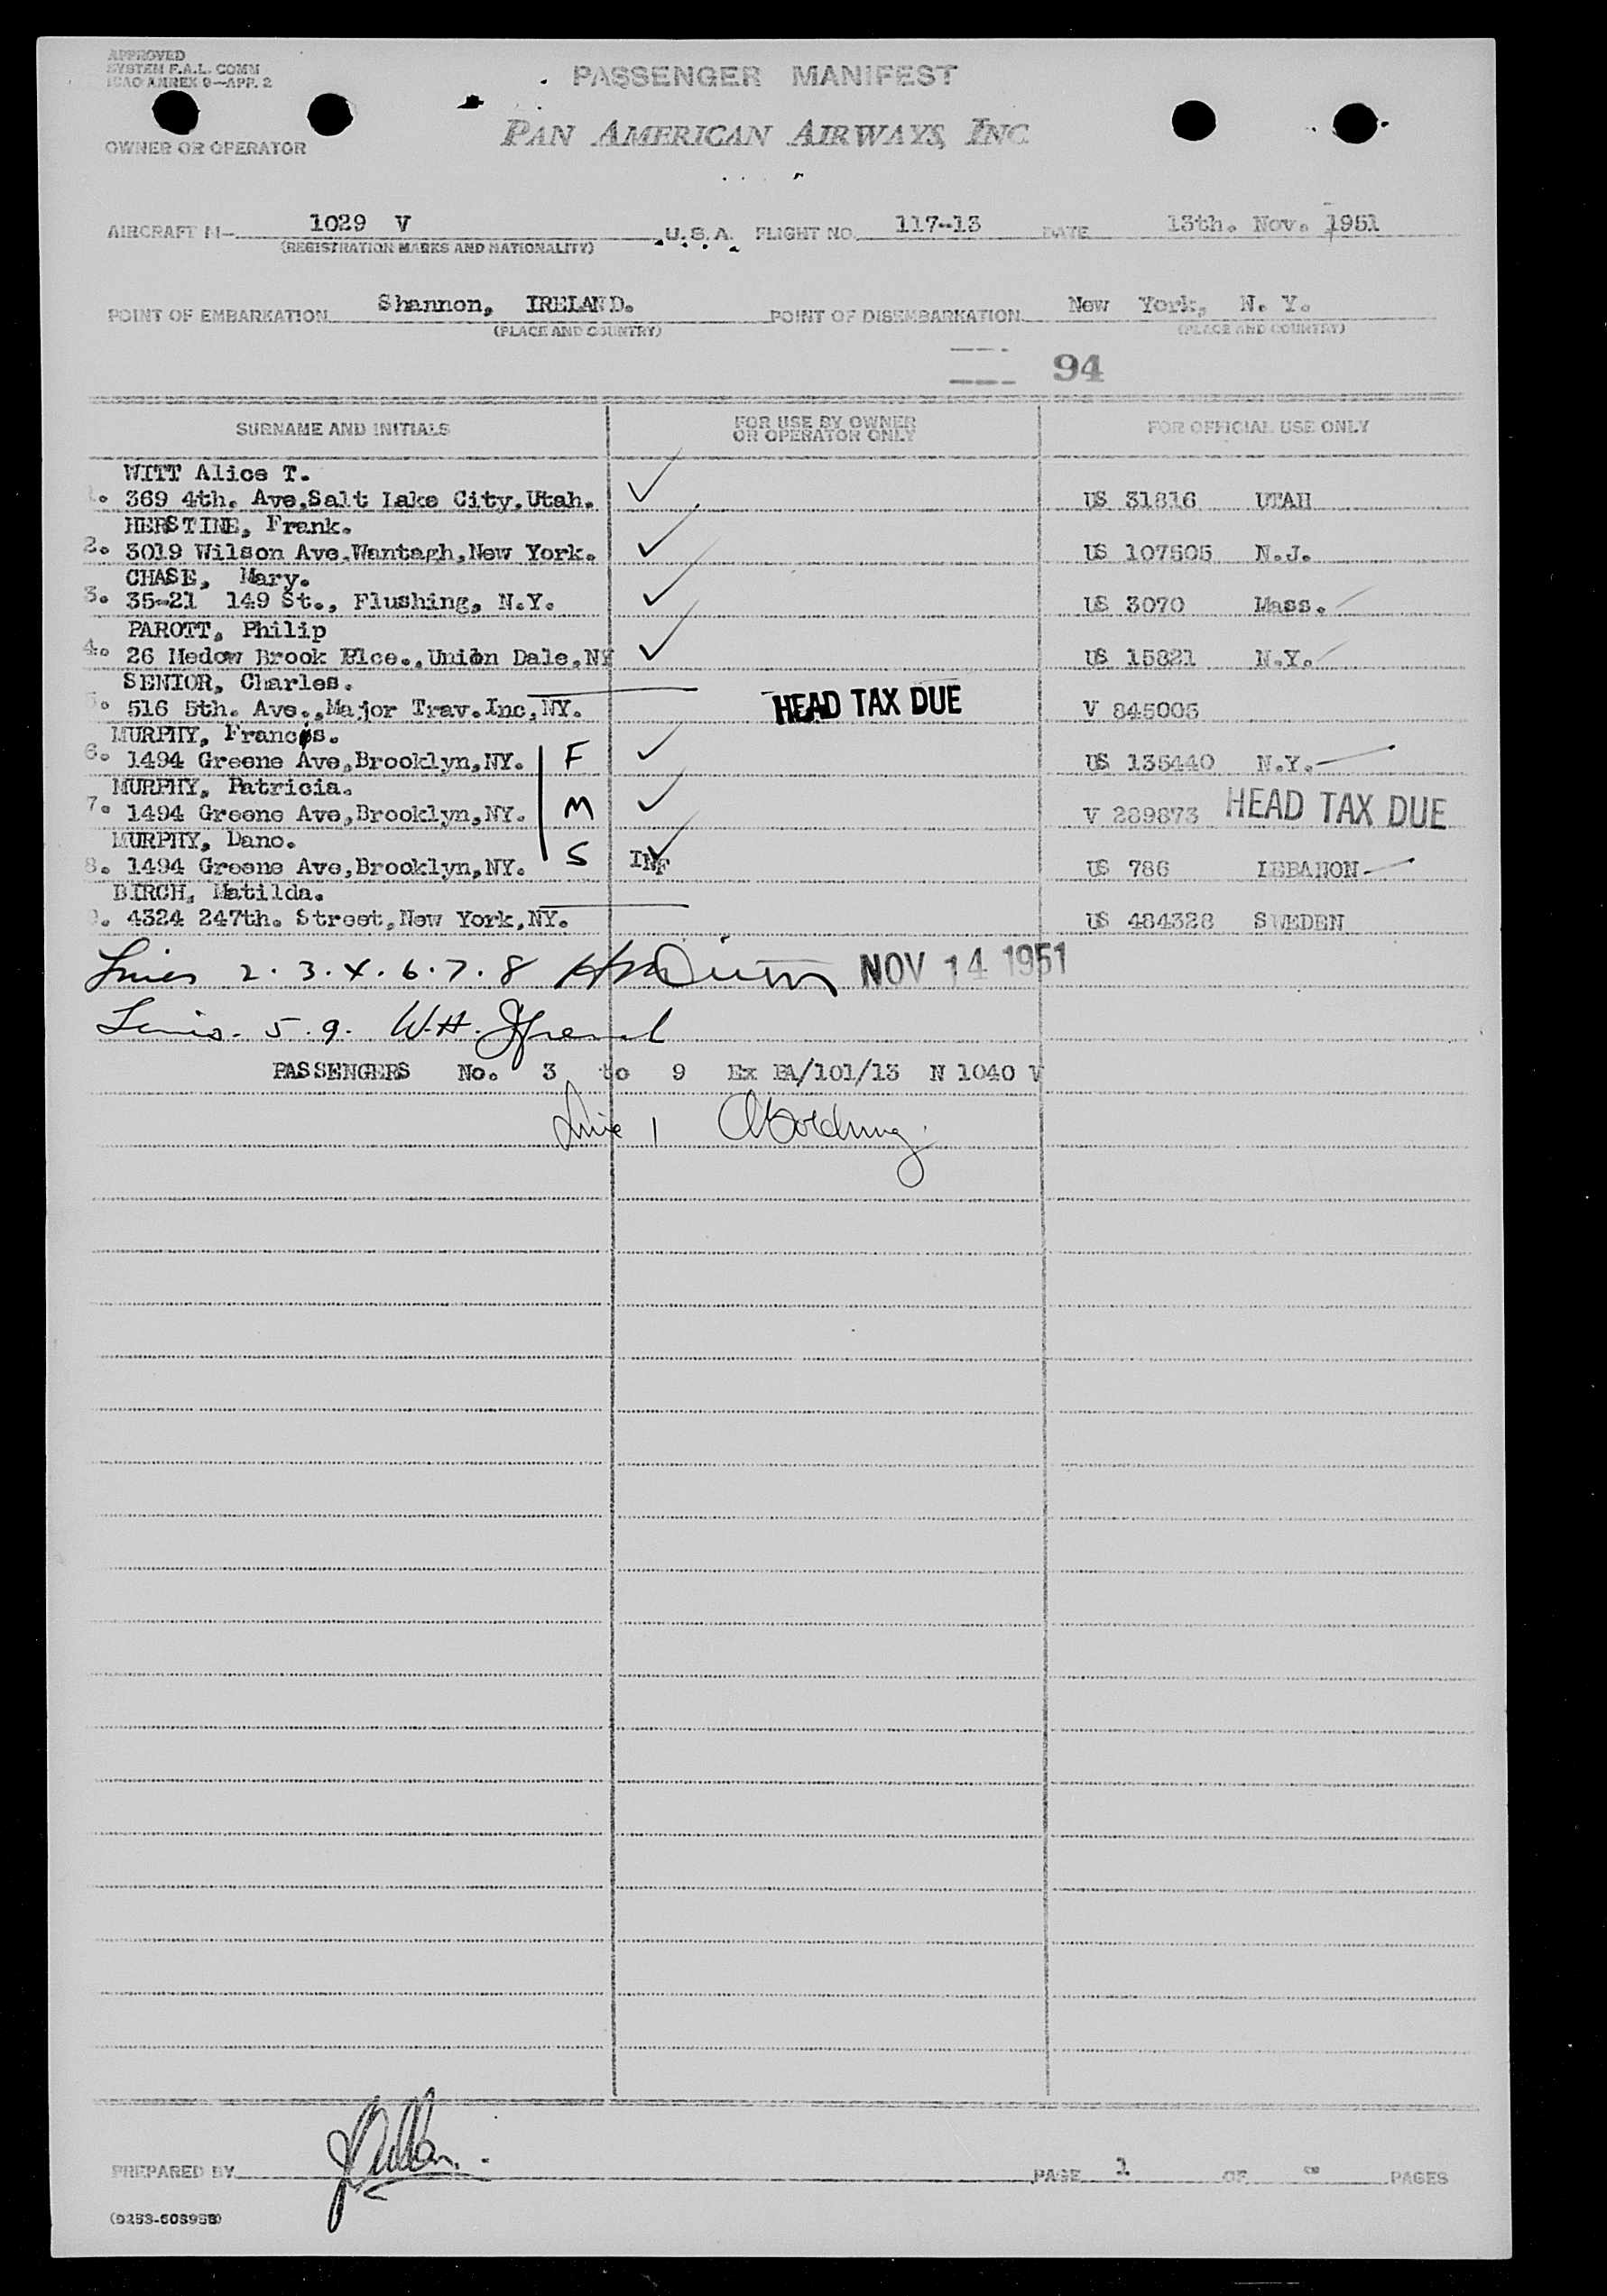 APPROVED
SYSTEM F.A.L. COMM
ICAO ANNEX 9—APP. 2
PASSENGER MANIFEST
OWNER OR OPERATOR
PAN AMERICAN AIRWAYS, INC.
AIRCRAFT N- 1029 V U.S.A. FLIGHT NO. 117-13 DATE 13th. Nov. 1951
(REGISTRATION MARKS AND NATIONALITY)
POINT OF EMBARKATION Shannon, IRELAND. POINT OF DISEMBARKATION New York, N. Y.
(PLACE AND COUNTRY) (PLACE AND COUNTRY)
94
SURNAME AND INITIALS FOR USE BY OWNER OR OPERATOR ONLY FOR OFFICIAL USE ONLY
WITT Alice T.
1. 369 4th. Ave,Salt Lake City,Utah. US 31816 UTAH
HERSTINE, Frank.
2. 3019 Wilson Ave,Wantagh,New York. US 107505 N.J.
CHASE, Mary.
3. 35-21 149 St., Flushing, N.Y. US 3070 Mass.
PAROTT, Philip
4. 26 Medow Brook Plce.,Union Dale,NY US 15821 N.Y.
SENIOR, Charles.
5. 516 5th. Ave.,Major Trav.Inc,NY. HEAD TAX DUE V 845005
MURPHY, Francis.
6. 1494 Greene Ave,Brooklyn,NY. F US 135440 N.Y.
MURPHY, Patricia.
7. 1494 Greene Ave,Brooklyn,NY. M V 289873 HEAD TAX DUE
MURPHY, Dano.
8. 1494 Greene Ave,Brooklyn,NY. S INF US 786 LEBANON
BIRCH, Matilda.
9. 4324 247th. Street,New York,NY. US 484328 SWEDEN
Lines 2.3.4.6.7.8 NOV 14 1951
Lines. 5.9. W.H.
PASSENGERS No. 3 to 9 Ex PA/101/13 N 1040 V
Line 1
PREPARED BY PAGE 1 OF - PAGES